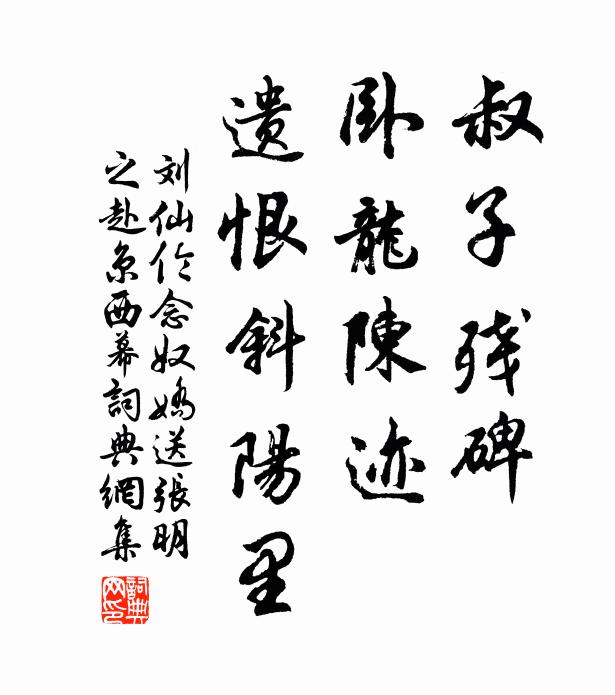 叔子残碑
卧龍陳迹
遺恨斜陽里
刘仙伦念奴嬌送張明
之赴京西幕詞典網集
詞典网印